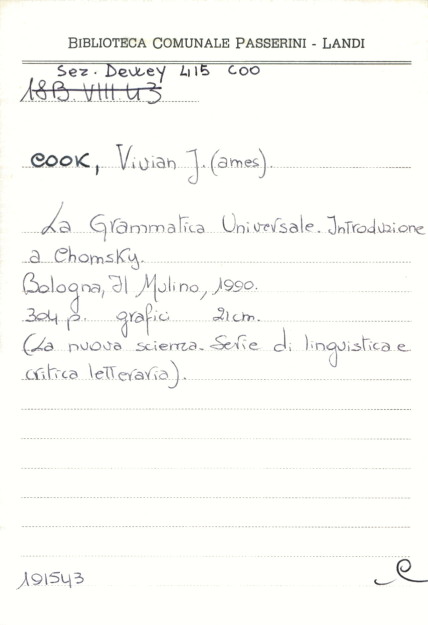 BIBLIOTECA COMUNALE PASSERINI - LANDI
Sez. Dewey 415 COO
18B.VIII.43
COOK, Vivian J.(ames).
La Grammatica Universale. Introduzione
a Chomsky.
Bologna, Il Mulino, 1990.
304 p. grafici 21 cm.
(La nuova scienza. Serie di linguistica e
critica letteraria).
191543